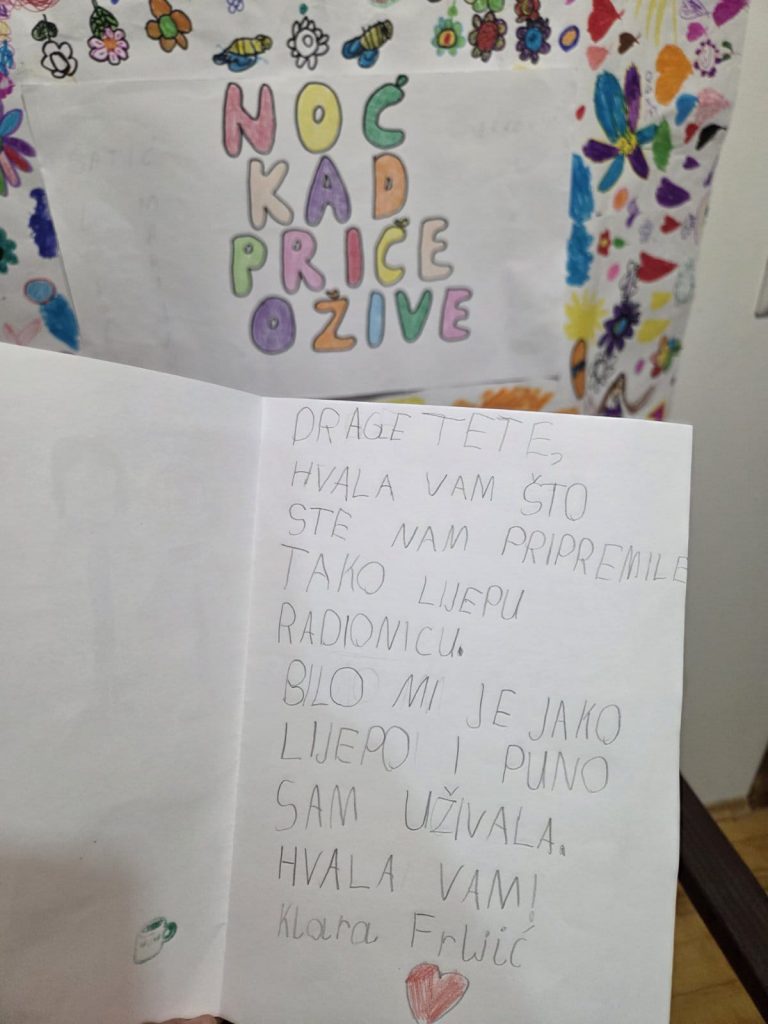 NOĆ
KAD
PRIČE
OŽIVE
DRAGE TETE,
HVALA VAM ŠTO
STE NAM PRIPREMILE
TAKO LIJEPU
RADIONICU.
BILO MI JE JAKO
LIJEPO I PUNO
SAM UŽIVALA.
HVALA VAM!
Klara